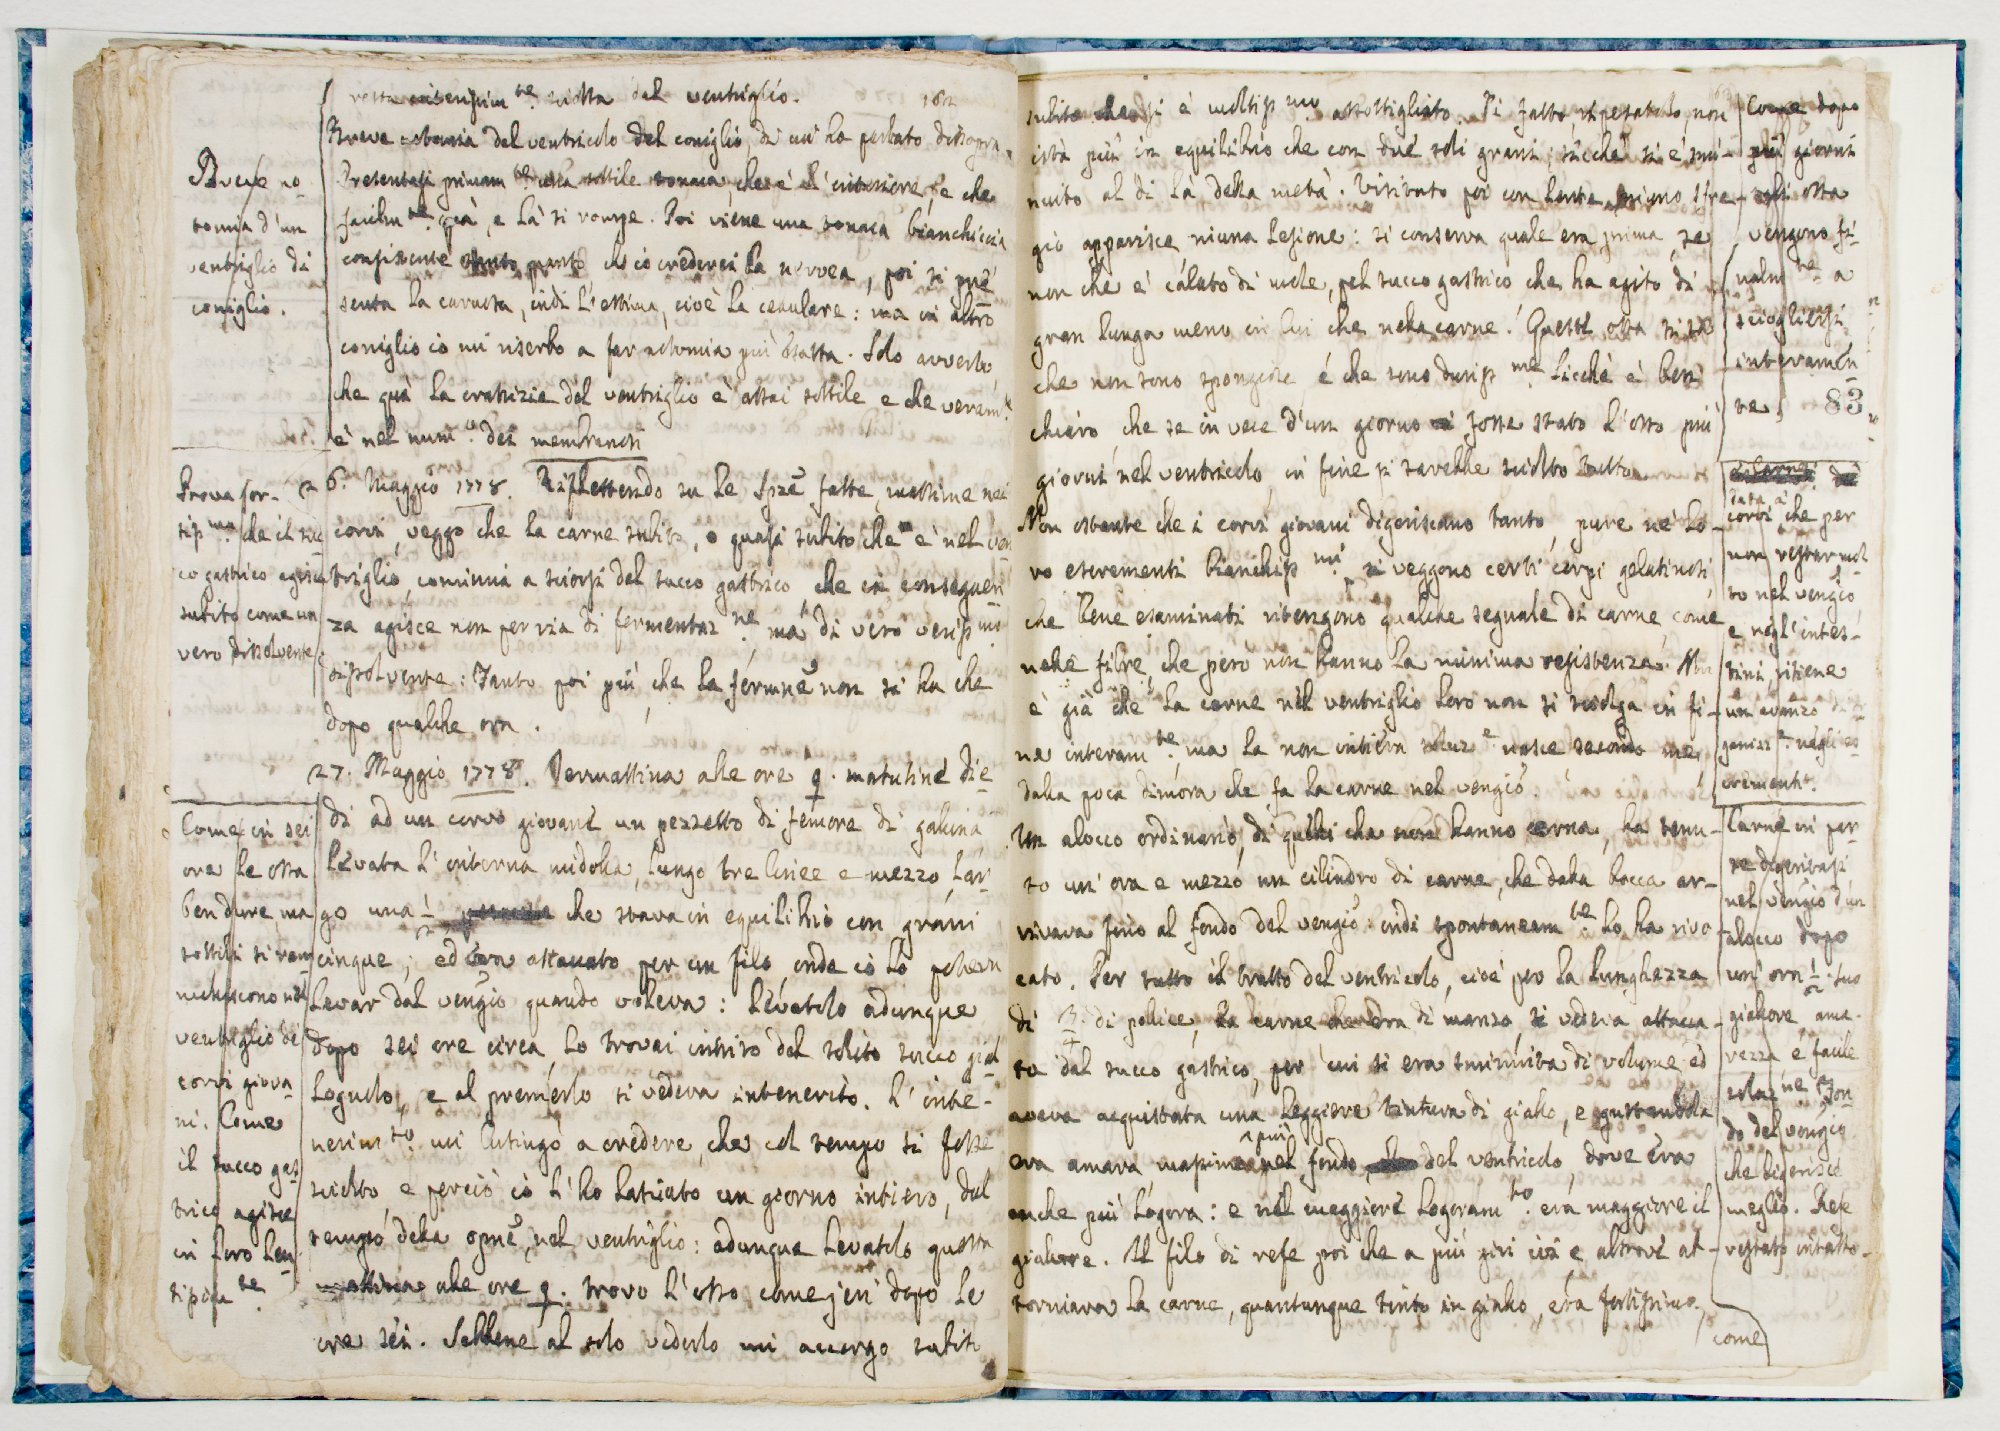 sciolta dal ventriglio.
Breve notomia del ventricolo del coniglio, di cui ho parlato dissopra.
Presentasi primam.te una sottile tonaca, che è l'interiore, e che
facilm.te quà, e là si rompe. Poi viene una tonaca bianchiccia
consistente ch'io crederei la nervea, poi si pre
senta la carnosa, indi l'ottima, cioè la cellulare: ma in altro
coniglio io mi riserbo a far notomia più esatta. Solo avverto,
che quà la crassizie del ventriglio è assai sottile e che veram.te
è nel num.o dei membranosi
Breve no-
tomia d'un
ventriglio di
coniglio.
26. Maggio 1778. Riflettendo su le spze fatte, massime nei
corvi, veggo che la carne subito, o quasi subito che è nel ven
triglio, comincia a sciorsi dal succo gastrico, che in conseguen
za agisce non per via di fermentaz.ne ma di vero veriss.mo
dissolvente: Tanto poi più, che la fermne non si ha che
dopo qualche ora.
Prova for-
tiss.ma che il suc
co gastrico agisce
subito come un
vero dissolvente
27. Maggio 1778. Jermattina alle ore 9. matutine die
di ad un corvo giovane un pezzetto di femore di gallina
levata l'interna midolla, lungo tre linee e mezzo, lar
go una ½ che stava in equilibrio con grani
cinque; ed era attaccato per un filo onde io lo potessi
levar dal vengio quando voleva: Levatolo adunque
dopo sei ore circa lo trovai intriso del solito succo gial
lognolo, e al premerlo si vedeva intenerito. L'inte-
nerim.to mi lusingò a credere, che col tempo si fosse
sciolto, e perciò io l'ho lasciato un giorno intiero, dal
tempo della opne, nel ventriglio: adunque levatolo questa
mattina alle ore 9. trovo l'osso come jeri dopo le
ore sei. Sebbene al solo vederlo mi accorgo subito
Come in sei
ore le ossa
ben dure, ma
sottili si ram
molliscono nel
ventriglio de'
corvi giova-
ni. Come
il succo gas
trico agisce
in loro len
tissima.te
subito che si è moltiss.mo assottigliato. Di fatto, ripesatolo non
istà più in equilibrio che con due soli grani; sicchè si è smi-
nuito al di là della metà. Visitato poi con lente, niuno sfre-
gio apparisce, niuna lesione: si conserva quale era prima, se
non che è calato di mole, pel succo gastrico che ha agito di
gran lunga meno in lui che nella carne. Queste ossa si sà
che non sono spongiose é che sono duriss.me Sicchè è ben
chiaro che se in vece d'un giorno fosse stato l'osso più
giorni nel ventricolo, in fine si sarebbe sciolto tutto.
Non ostante che i corvi giovani digeriscano tanto, pure ne' lo-
ro escrementi bianchiss.mi si veggono certi corpi gelatinosi,
che bene esaminati ritengono qualche segnale di carne, come
nelle fibre, che però non hanno la minima resistenza. Ma
è già che la carne nel ventriglio loro non si sciolga in fi-
ne interam.te, ma la non intiera soluz.e nasce secondo me
dalla poca dimora che fa la carne nel vengio.
Un alocco ordinario, di quelli che non hanno corna, ha tenu-
to un'ora e mezzo un cilindro di carne, che dalla bocca ar-
rivava fino al fondo del vengio: indi spontaneam.te lo ha rivo
cato. Per tutto il tratto del ventricolo, cioè per la lunghezza
di di police, la carne che era di manzo si vedeva attacca-
ta dal succo gastrico, per cui si era sminuita di volume ed
aveva acquistata una leggiere tintura di giallo, e gustandola
era amara, massime più nel fondo del ventricolo, dove era
anche più logora: e nel maggiore logoram.to era maggiore il
giallore. Il filo di refe poi che a più giri ivi e altrove at-
torniava la carne, quantunque tinto in giallo, era fortissimo,
come
Come dopo
più giorni
esse ossa
vengono fi-
nalm.te a
sciogliersi
interamen
te.
83
corvi che per
non restar mol
to nel vengio
e negl'intes-
tini ritiene
un avanzo di or
ganizz.e negli es
crementi.
Carne in par
te digeritasi
nel vengio d'un
alocco dopo
un'ora ½. Suo
giallore ama-
rezza e facile
soluz.ne Fon-
do del vengio
che digerisce
meglio. Refe
restato intatto.